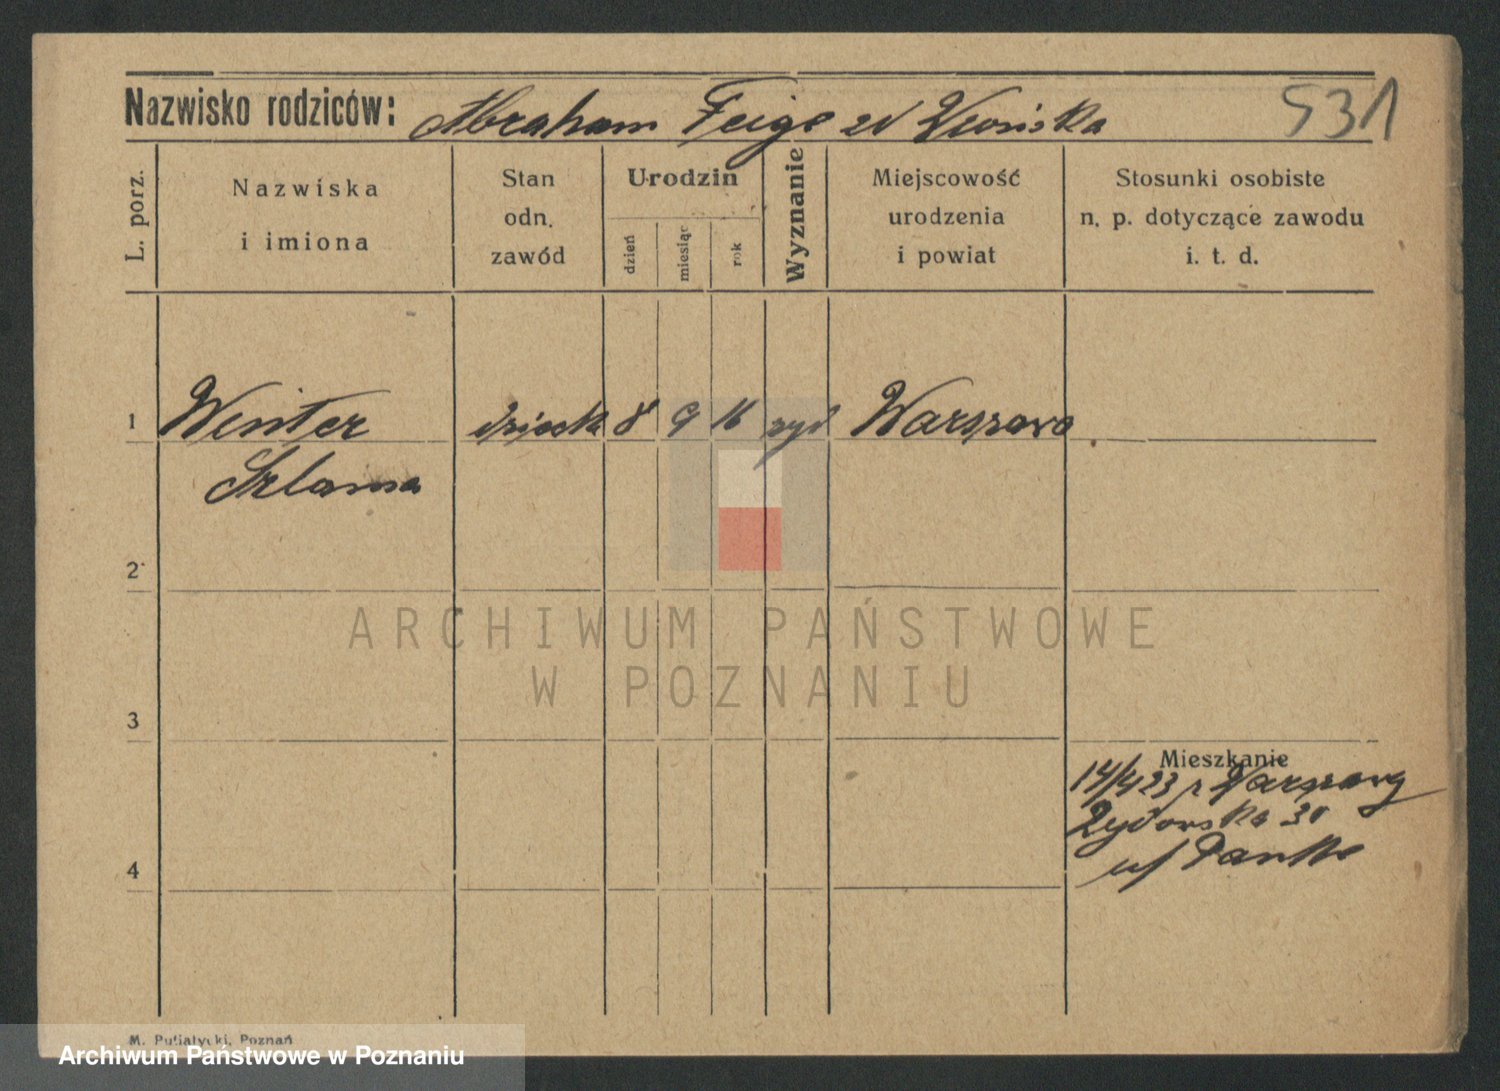 Nazwisko rodziców: Abraham Feige 531
L. porz.
Nazwiska
i imiona
Stan
odn.
zawód
Urodzin
dzień
miesiąc
rok
Wyznanie
Miejscowość
urodzenia
i powiat
Stosunki osobiste
n. p. dotyczące zawodu
i. t. d.
1 Winter dziecko 8 9 16 żyd Warszawa
Szlama
2
3
Mieszkanie
14/4 23 z Warszawy
Żydowska 30
4
M. Putiatycki, Poznań
ARCHIWUM PAŃSTWOWE
W POZNANIU
Archiwum Państwowe w Poznaniu